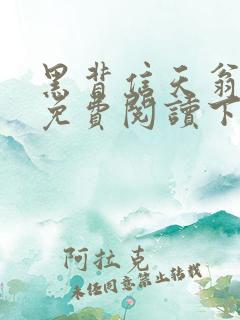 黑背信天翁
免費閱讀下
阿拉克
未经同意禁止转载